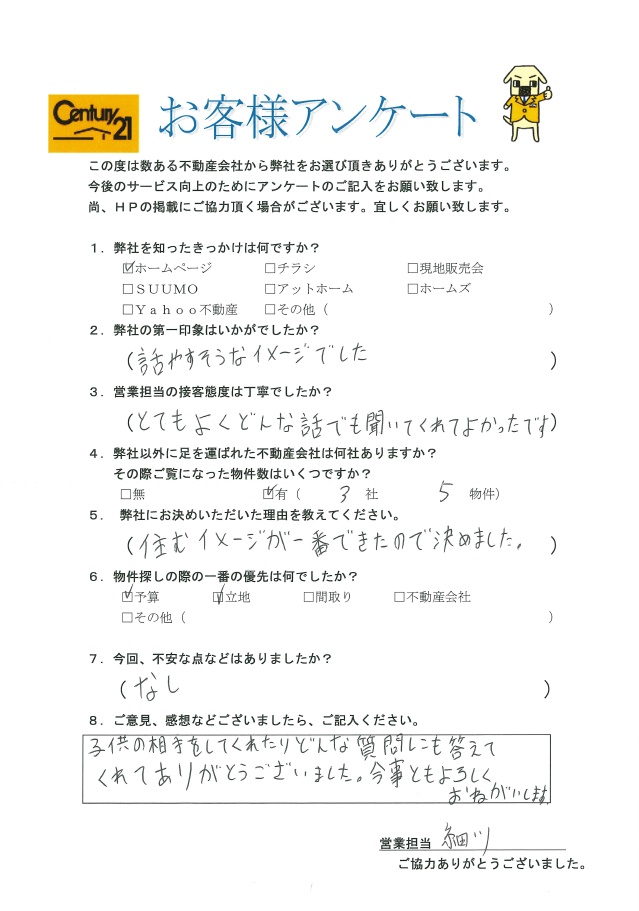 Century 21
お客様アンケート
この度は数ある不動産会社から弊社をお選び頂きありがとうございます。
今後のサービス向上のためにアンケートのご記入をお願い致します。
尚、HPの掲載にご協力頂く場合がございます。宜しくお願い致します。
1．弊社を知ったきっかけは何ですか？
☑ホームページ　□チラシ　□現地販売会
□SUUMO　□アットホーム　□ホームズ
□Yahoo不動産　□その他（　）
2．弊社の第一印象はいかがでしたか？
（話やすそうなイメージでした）
3．営業担当の接客態度は丁寧でしたか？
（とてもよくどんな話でも聞いてくれてよかったです）
4．弊社以外に足を運ばれた不動産会社は何社ありますか？
その際ご覧になった物件数はいくつですか？
□無　☑有（　3　社　5　物件）
5．弊社にお決めいただいた理由を教えてください。
（住むイメージが一番できたので決めました。）
6．物件探しの際の一番の優先は何でしたか？
☑予算　☑立地　□間取り　□不動産会社
□その他（　）
7．今回、不安な点などはありましたか？
（なし）
8．ご意見、感想などございましたら、ご記入ください。
子供の相手をしてくれたりどんな質問にも答えて
くれてありがとうございました。今事ともよろしく
おねがいします。
営業担当　細川
ご協力ありがとうございました。